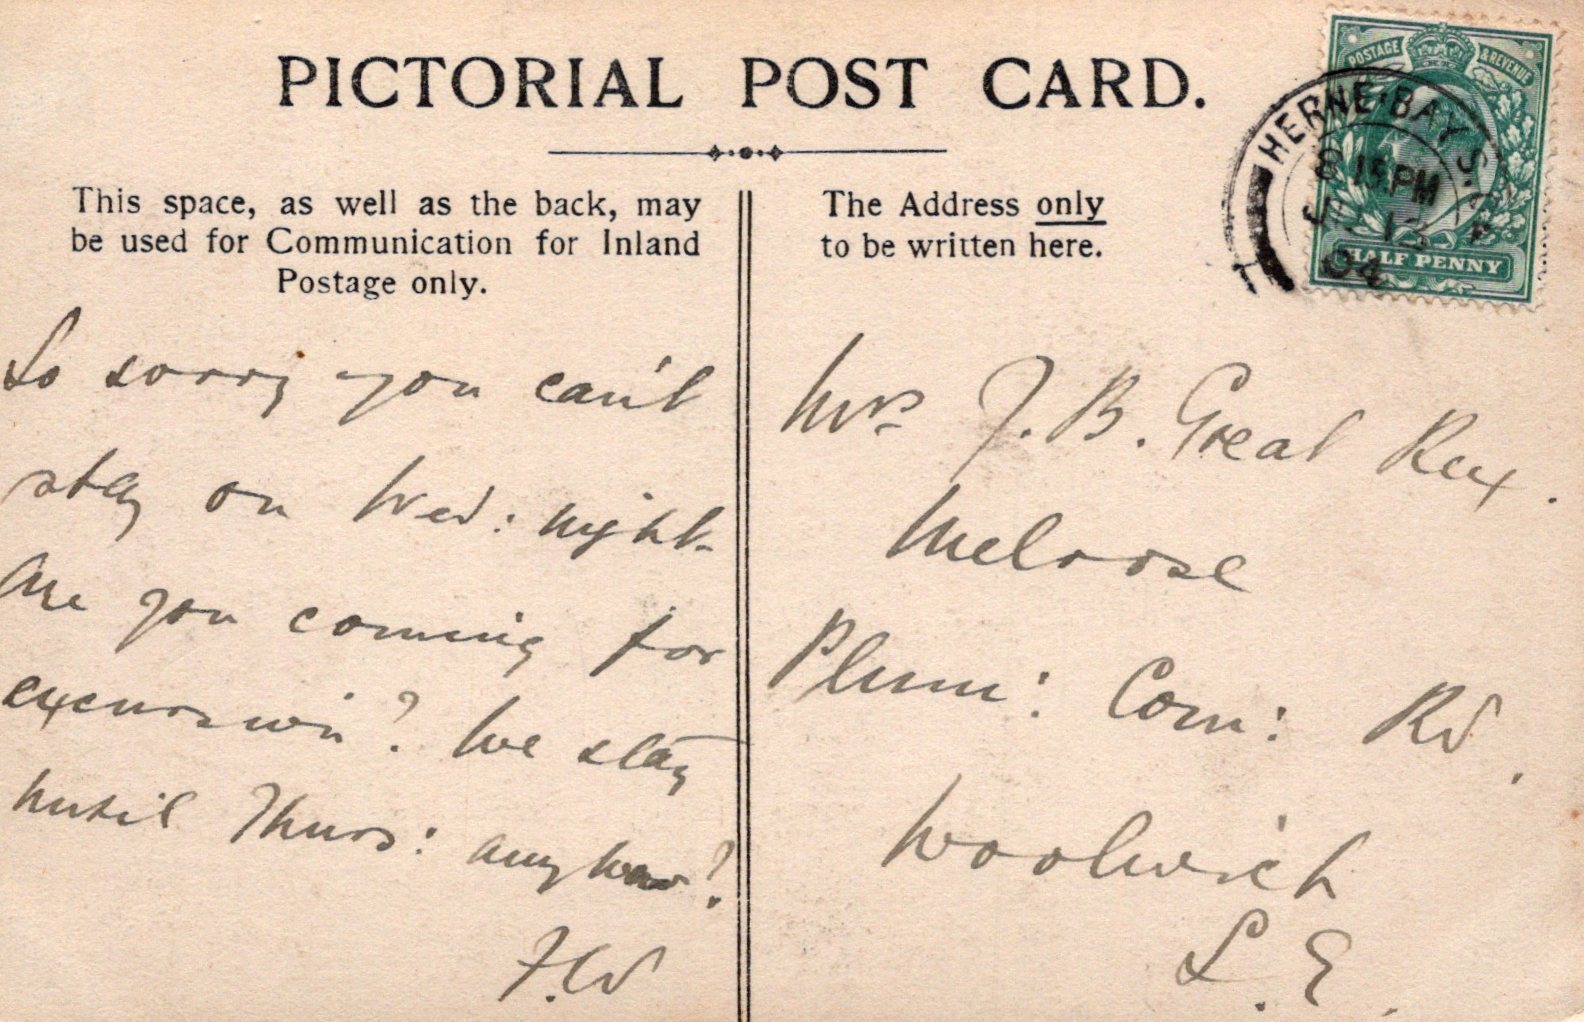 PICTORIAL POST CARD.
This space, as well as the back, may
be used for Communication for Inland
Postage only.
So sorry you can't
stay on Wed: night.
Are you coming for
excursion? We stay
until Thurs: anyhow?
F.W
The Address only
to be written here.
Mrs J. B. Great Rex.
Melrose
Plum: Com: Rd.
Woolwich
S. E.
POSTAGE & REVENUE
HALF PENNY
HERNE·BAY S.O
8 15 PM
12
04